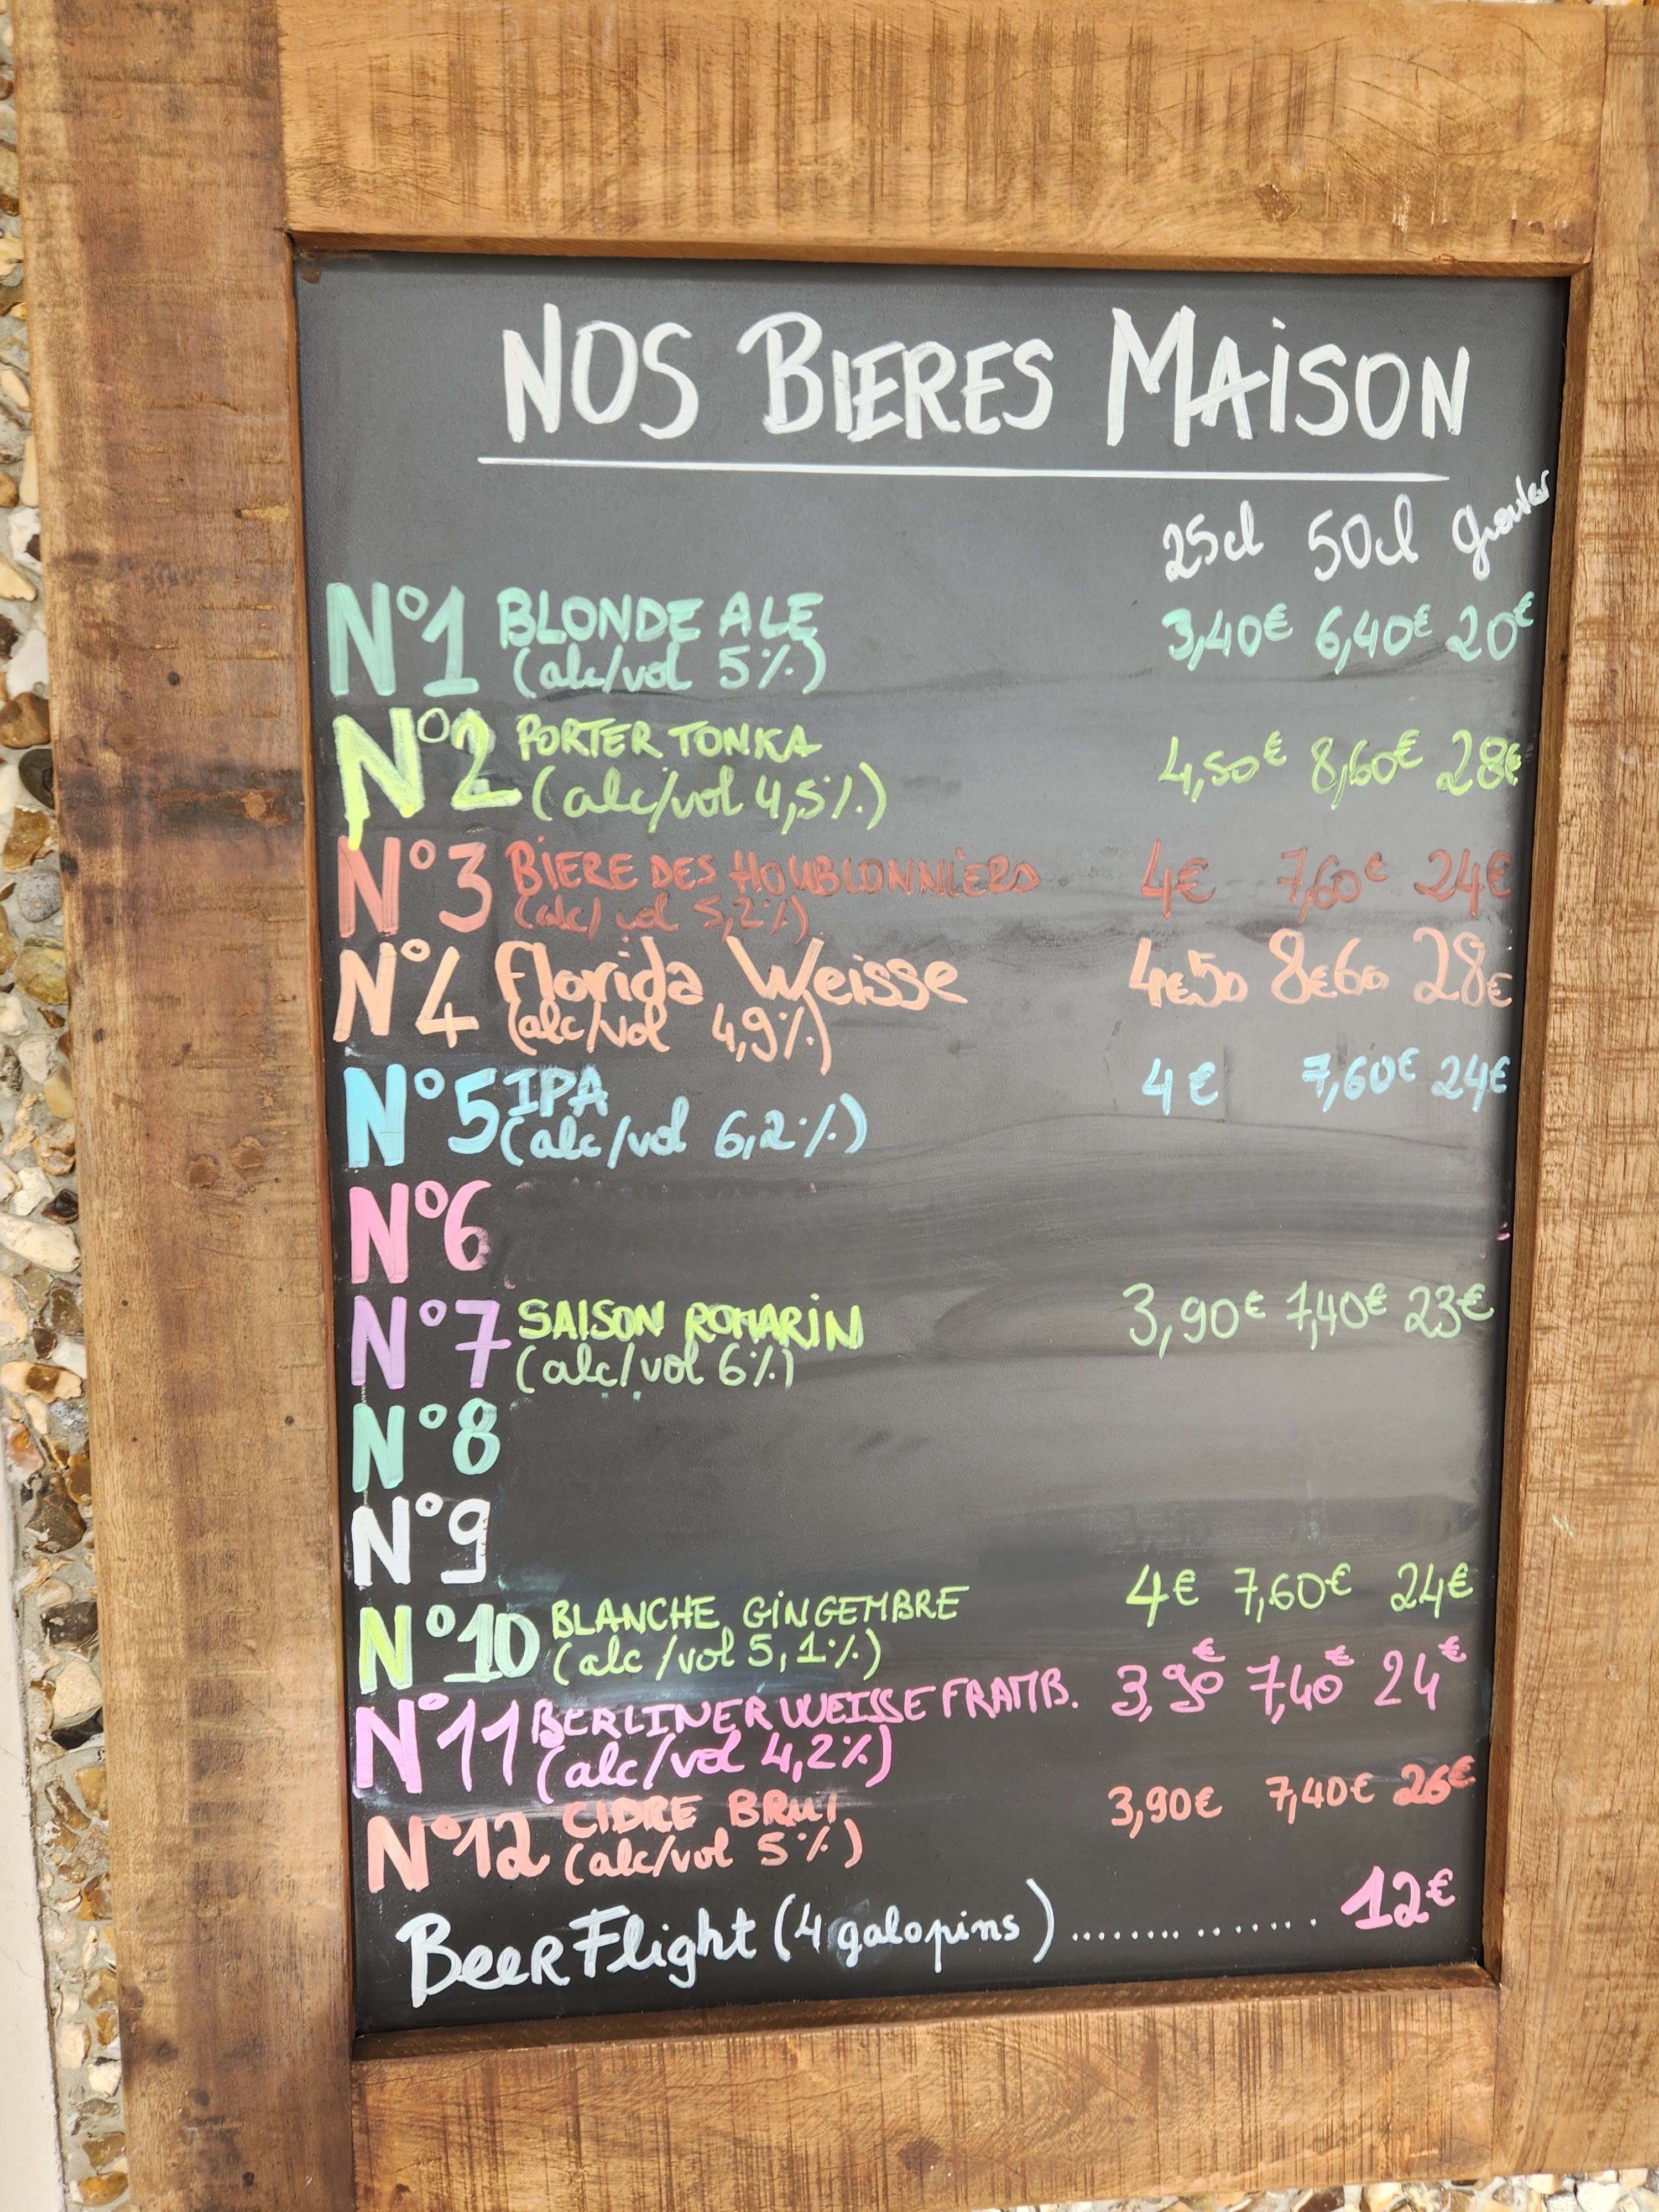 NOS BIERES MAISON
25cl 50cl growler
N°1 BLONDE ALE 3,40€ 6,40€ 20€
(alc/vol 5%)
N°2 PORTER TONKA 4,50€ 8,60€ 28€
(alc/vol 4,5%)
N°3 BIERE DES HOUBLONNIERS 4€ 7,60€ 24€
(alc/vol 5,2%)
N°4 Florida Weisse 4€50 8€60 28€
(alc/vol 4,9%)
N°5 IPA 4€ 7,60€ 24€
(alc/vol 6,2%)
N°6
N°7 SAISON ROMARIN 3,90€ 7,40€ 23€
(alc/vol 6%)
N°8
N°9
N°10 BLANCHE GINGEMBRE 4€ 7,60€ 24€
(alc/vol 5,1%)
N°11 BERLINER WEISSE FRAMB. 3,90€ 7,40€ 24€
(alc/vol 4,2%)
N°12 CIDRE BRUT 3,90€ 7,40€ 26€
(alc/vol 5%)
Beer Flight (4 galopins) ............... 12€